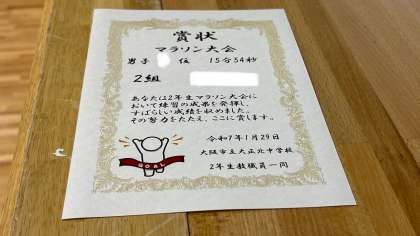 賞状
マラソン大会
男子 位 15分54秒
2組
あなたは2年生マラソン大会に
おいて練習の成果を発揮し、
すばらしい成績を収めました。
その努力をたたえ、ここに賞します。
令和7年1月29日
大阪市立大正北中学校
2年生教職員一同
GOAL